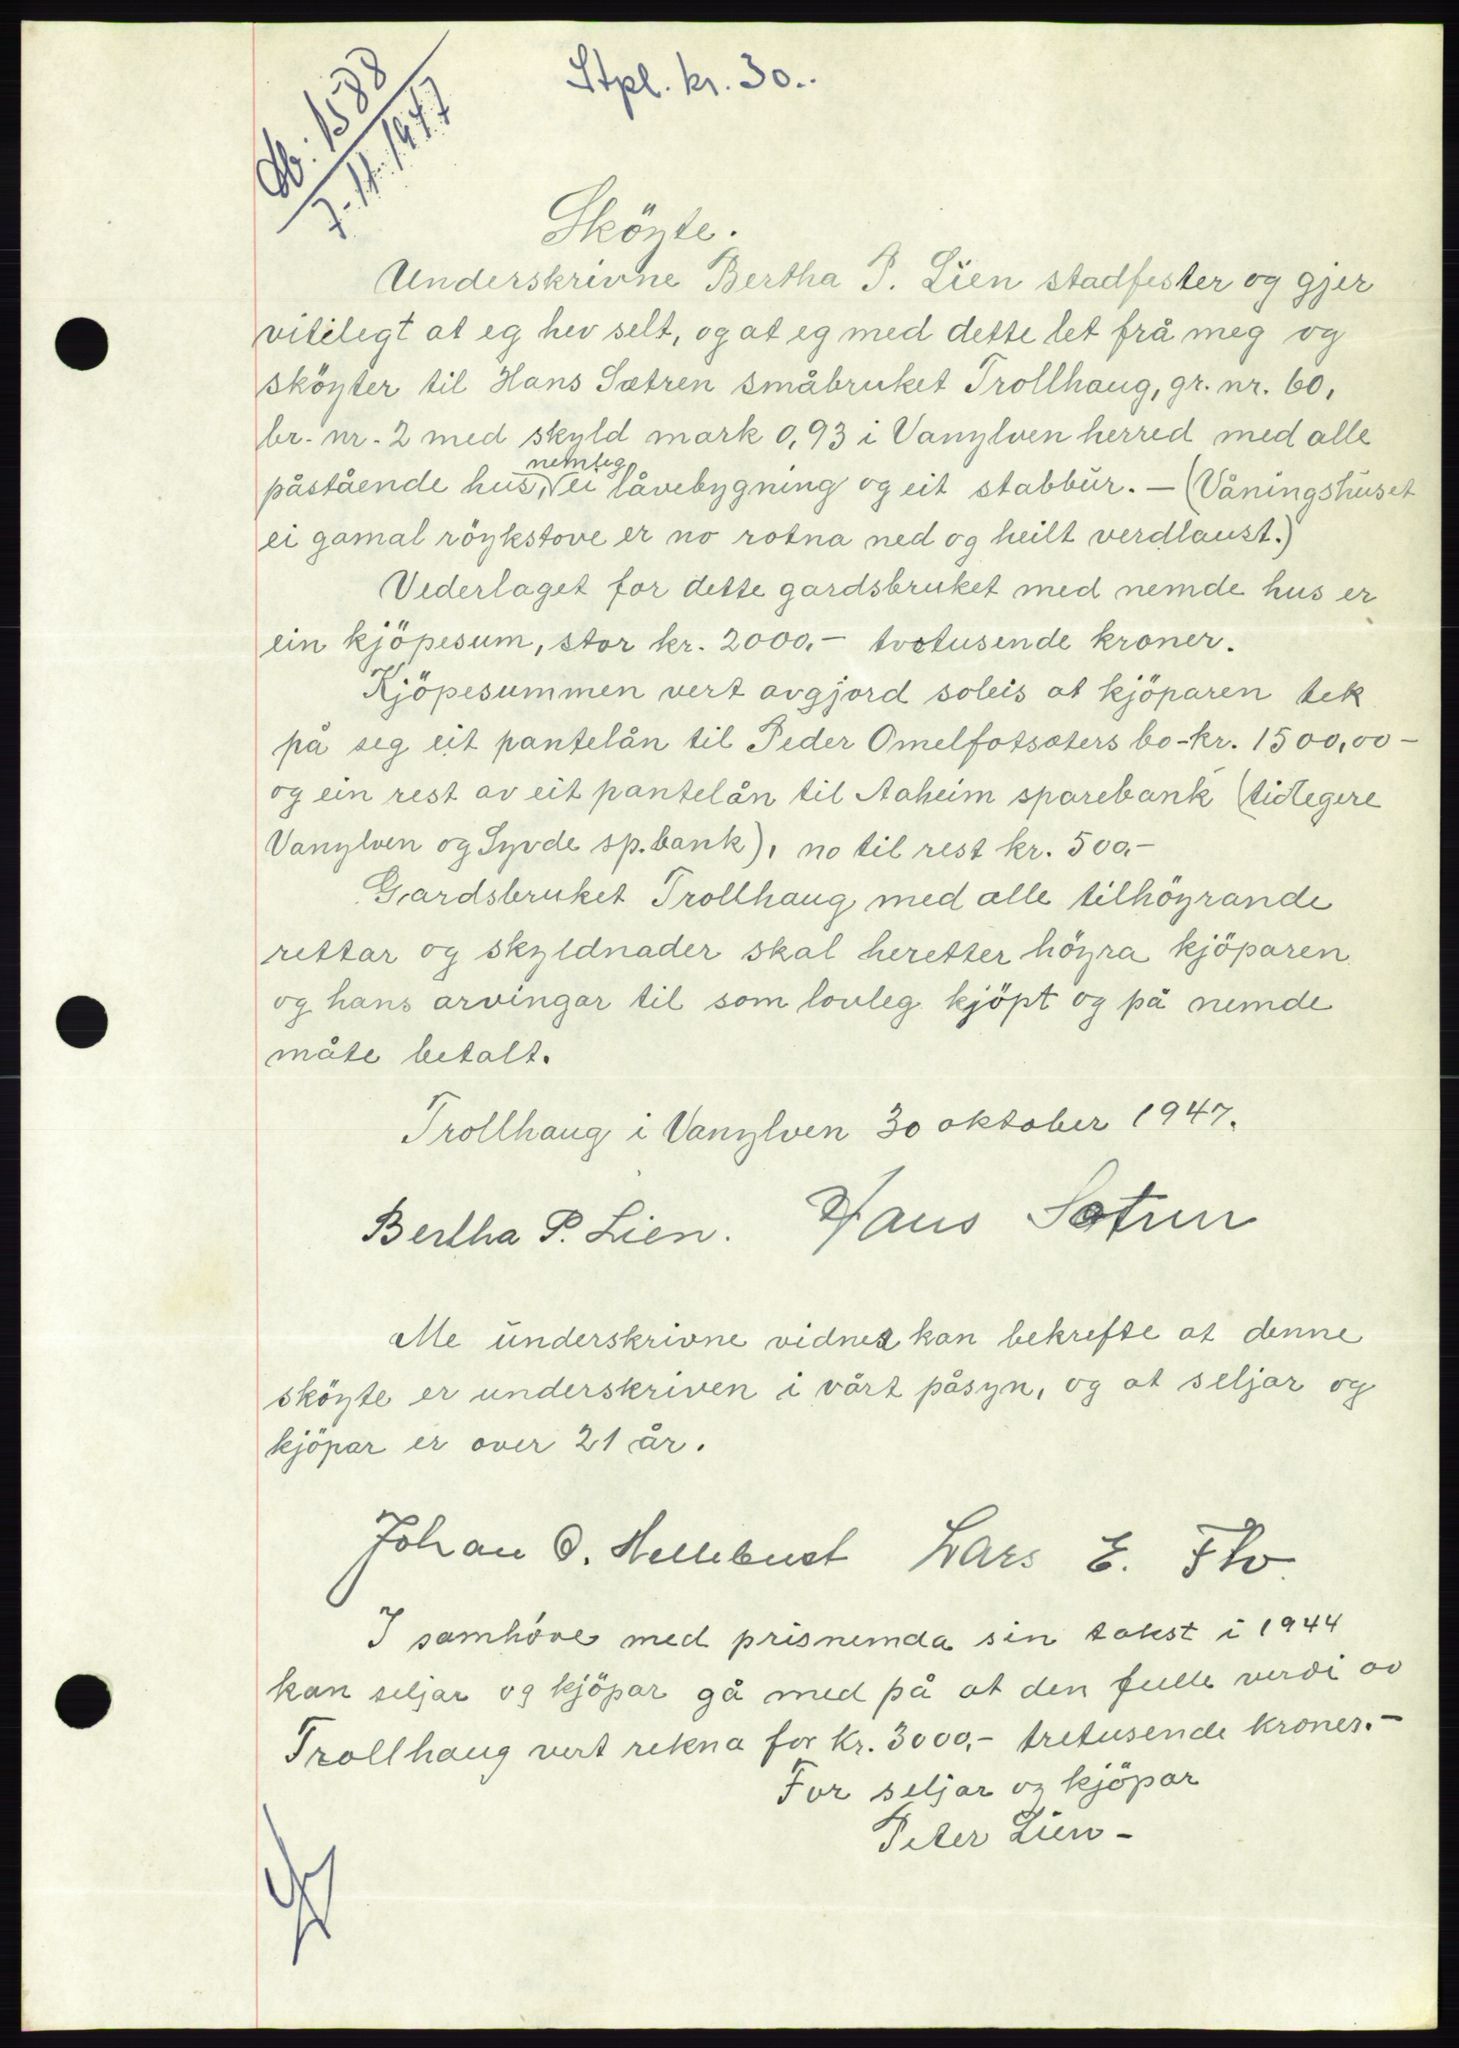 Db: 1588
7-11-1947
Stpl. kr. 30..
Sköyte.
Underskrivne Bertha P. Lien stadfester og gjer
vitelegt at eg hev selt, og at eg med dette let frå meg og
sköyter til Hans Sætren småbruket Trollhaug, gr. nr. 60,
br. nr. 2 med skyld mark 0,93 i Vanylven herred med alle
påstående hus, nemleg ei låvebygning og eit stabbur. — (Våningshuset
ei gamal röykstove er no rotna ned og heilt verdlaust.)
Vederlaget for dette gardsbruket med nemde hus er
ein kjöpesum, stor kr. 2000,- totusende kroner.
Kjöpesummen vert avgjord soleis at kjöparen tek
på seg eit pantelån til Peder Omelfotsæters bo-kr. 1500,00-
og ein rest av eit pantelån til Aaheim sparebank (tidlegere
Vanylven og Syvde sp.bank), no til rest kr. 500,-
Gardsbruket Trollhaug med alle tilhöyrande
rettar og skyldnader skal heretter höyra kjöparen
og hans arvingar til som lovleg kjöpt og på nemde
måte betalt.
Trollhaug i Vanylven 30 oktober 1947.
Bertha P. Lien. Hans Sætren
Me underskrivne vidner kan bekrefte at denne
sköyte er underskriven i vårt påsyn, og at seljar og
kjöpar er over 21 år.
Johan O. Hellebust Lars E. Flo.
I samhöve med prisnemda sin takst i 1944
kan seljar og kjöpar gå med på at den fulle verdi av
Trollhaug vert rekna for kr. 3000,- tretusende kroner.-
For seljar og kjöpar
Peter Lien-